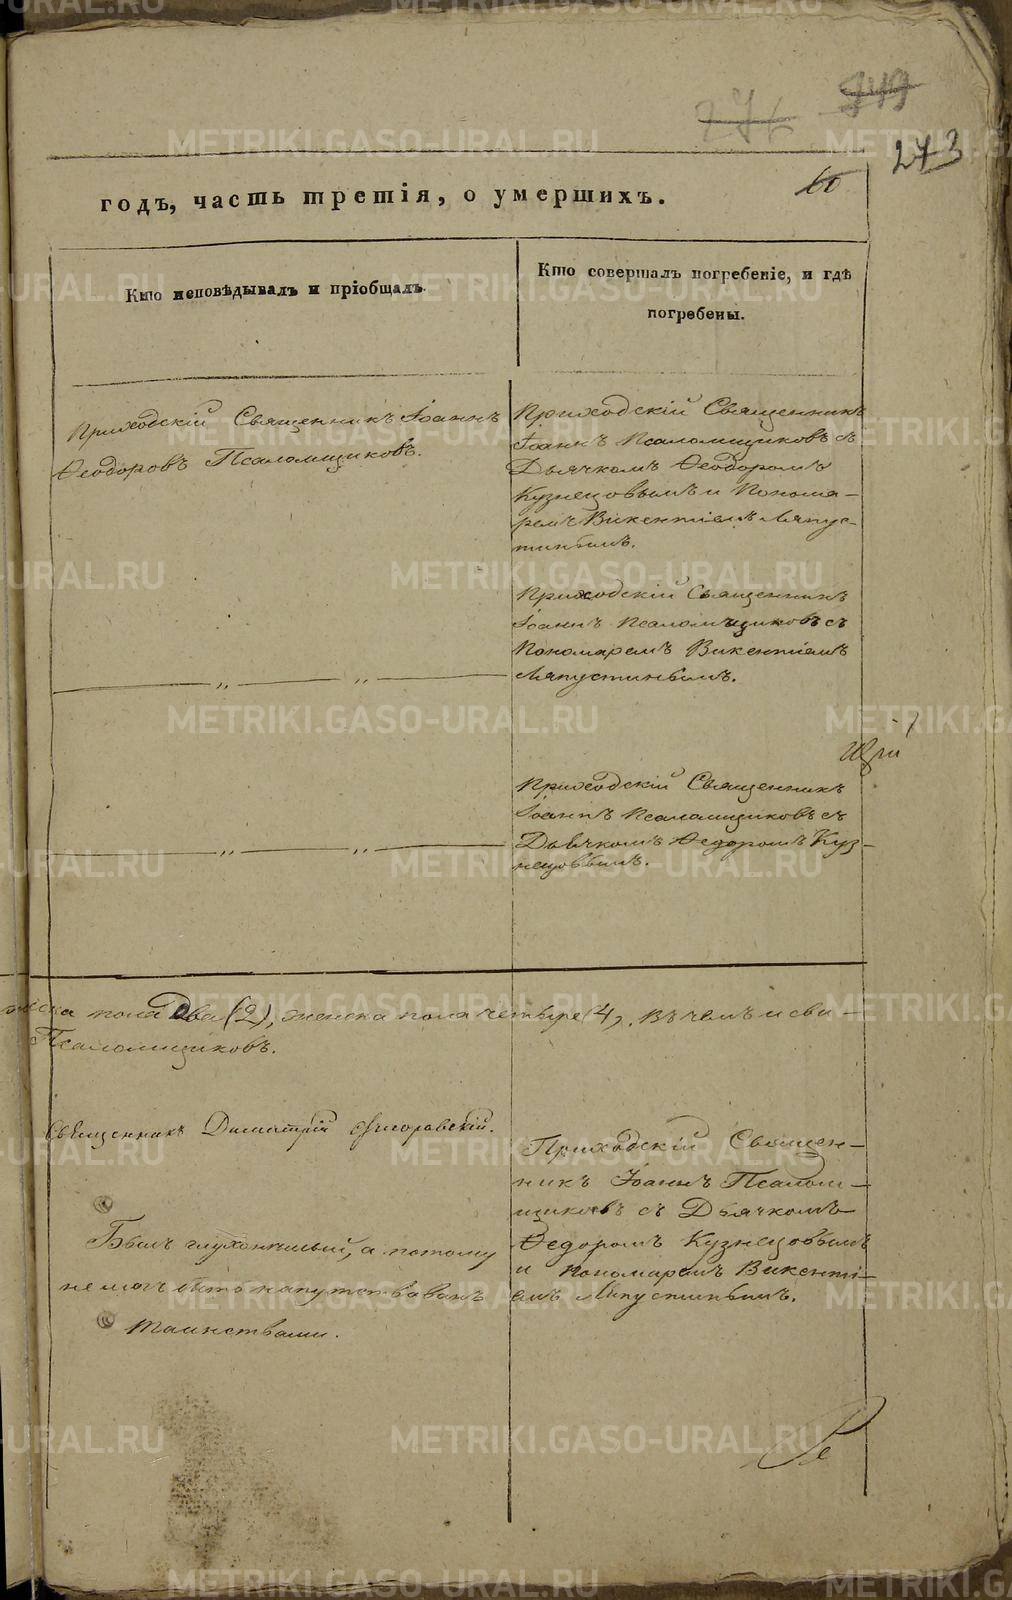 273
годъ, часть третія, о умершихъ.
Кто исповѣдывалъ и пріобщалъ.
Кто совершалъ погребеніе, и гдѣ
погребены.
Приходскій Священникъ Іоаннъ
Ѳеодоровъ Псаломщиковъ.
Приходскій Священникъ
Іоаннъ Псаломщиковъ съ
Дьячкомъ Ѳеодоромъ
Кузнецовымъ и Понома-
ремъ Викентіемъ Ляпус-
тинымъ.
Приходскій Священникъ
Іоаннъ Псаломщиковъ съ
Пономаремъ Викентіемъ
Ляпустинымъ.
— „ — „ —
Приходскій Священникъ
Іоаннъ Псаломщиковъ съ
Дьячкомъ Ѳедоромъ Куз-
нецовымъ.
— „ — „ —
жска пола два (2), женска пола четыре (4), въ чемъ и сви-
Псаломщиковъ.
Священникъ Димитрій
Былъ глухонѣмый, а потому
не могъ быть напутствованъ
таинствами.
Приходскій Священ-
никъ Іоаннъ Псалом-
щиковъ съ Дьячкомъ
Ѳедоромъ Кузнецовымъ
и Пономаремъ Викенті-
емъ Ляпустинымъ.
METRIKI.GASO-URAL.RU